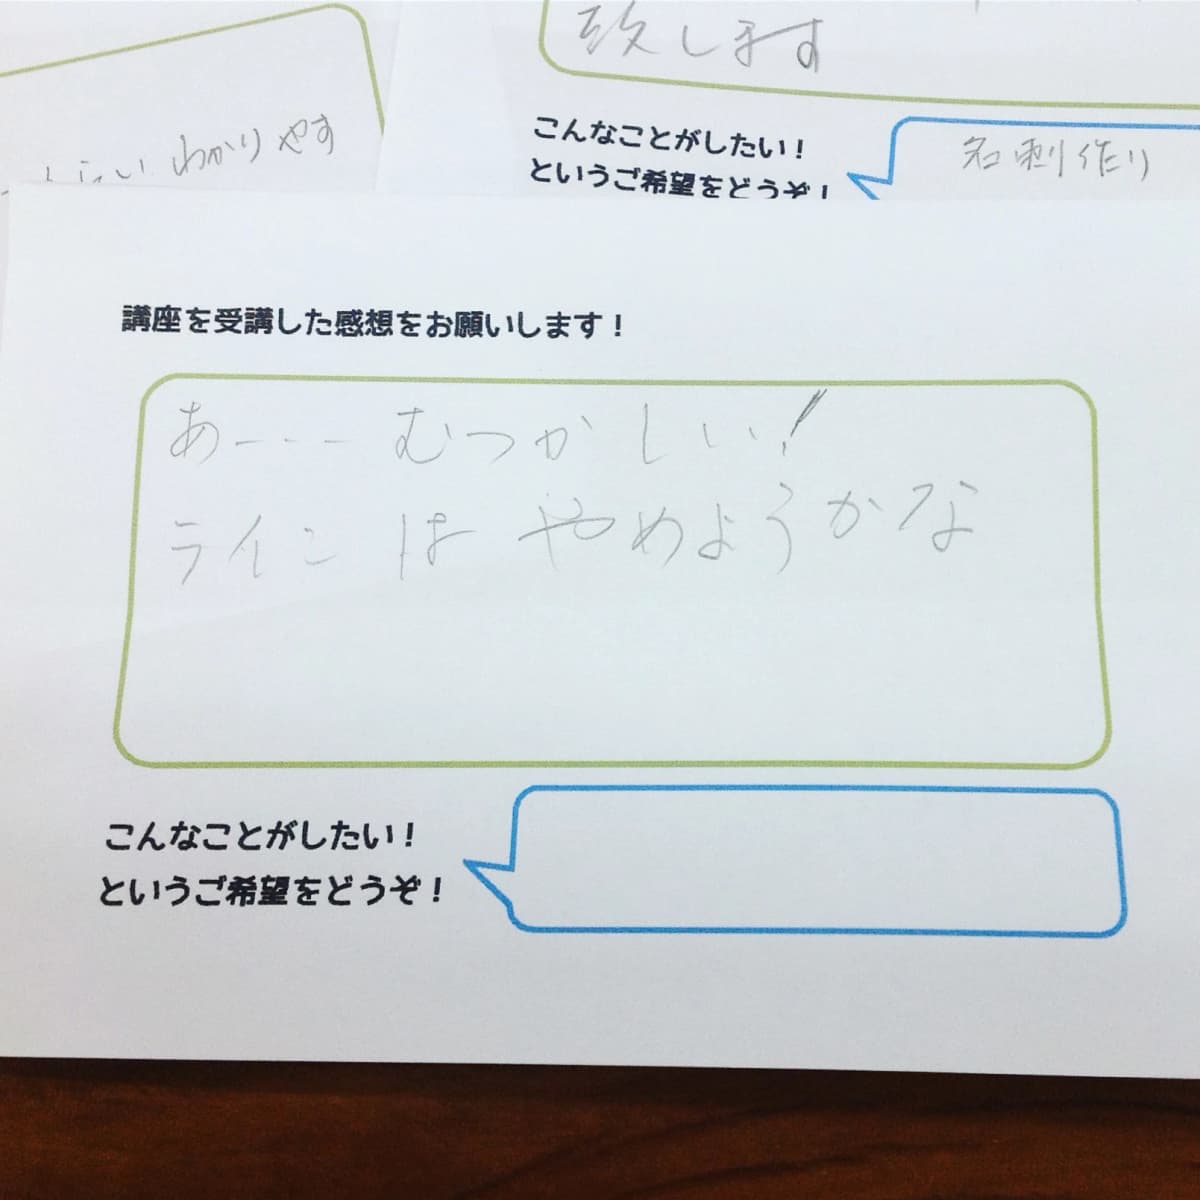 わかりやす
致します
こんなことがしたい！
というご希望をどうぞ！
名刺作り
講座を受講した感想をお願いします！
あ---- むつかしい！
ラインは やめようかな
こんなことがしたい！
というご希望をどうぞ！